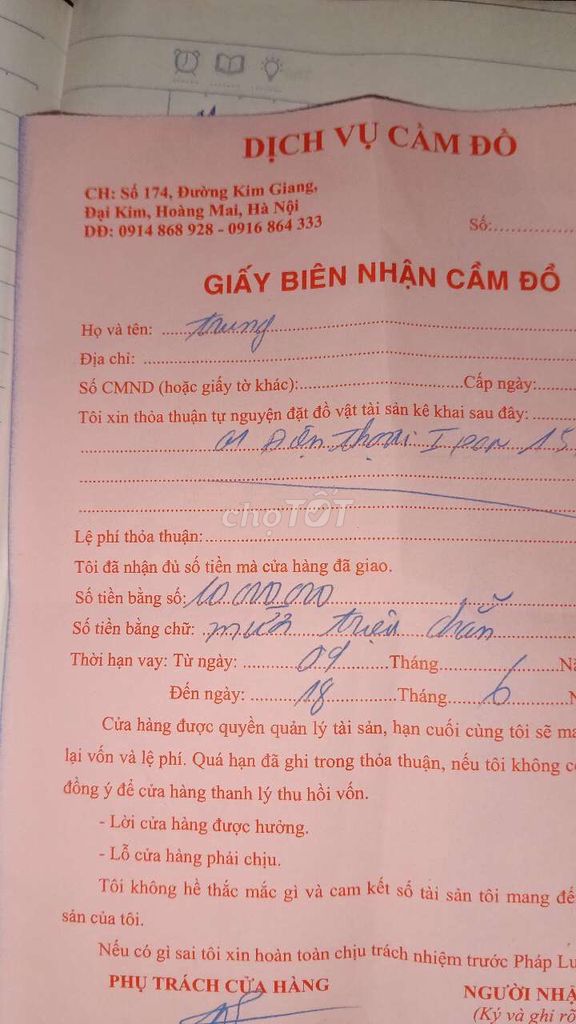 DỊCH VỤ CẦM ĐỒ
CH: Số 174, Đường Kim Giang,
Đại Kim, Hoàng Mai, Hà Nội
DĐ: 0914 868 928 - 0916 864 333
Số:
GIẤY BIÊN NHẬN CẦM ĐỒ
Họ và tên: trung
Địa chỉ:
Số CMND (hoặc giấy tờ khác): Cấp ngày:
Tôi xin thỏa thuận tự nguyện đặt đồ vật tài sản kê khai sau đây:
01 Điện thoại 15
chợTỐT
Lệ phí thỏa thuận:
Tôi đã nhận đủ số tiền mà cửa hàng đã giao.
Số tiền bằng số: 10.000.000
Số tiền bằng chữ: mười triệu chẵn
Thời hạn vay: Từ ngày: 09 Tháng
Đến ngày: 18 Tháng 6
Cửa hàng được quyền quản lý tài sản, hạn cuối cùng tôi sẽ
lại vốn và lệ phí. Quá hạn đã ghi trong thỏa thuận, nếu tôi không
đồng ý để cửa hàng thanh lý thu hồi vốn.
- Lời cửa hàng được hưởng.
- Lỗ cửa hàng phải chịu.
Tôi không hề thắc mắc gì và cam kết số tài sản tôi mang
sản của tôi.
Nếu có gì sai tôi xin hoàn toàn chịu trách nhiệm trước Pháp
PHỤ TRÁCH CỬA HÀNG
NGƯỜI
(Ký và ghi rõ